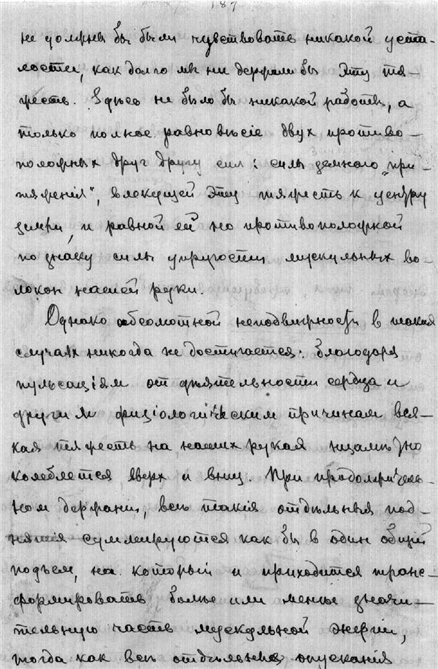 187
не должны бы были чувствовать никакой уста-
лости, как долго мы ни держали бы эту тя-
жесть. Здѣсь не было бы никакой работы, а
только полное равновѣсіе двух противо-
положных друг другу сил: силы земного „при-
тяженія", влекущей эту тяжесть к центру
земли, и равной ей но противоположной
по знаку силы упругости мускульных во-
локон нашей руки.
Однако абсолютной неподвижности в таких
случаях никогда не достигается. Благодаря
пульсаціям от дѣятельности сердца и
другим физіологическим причинам вся-
кая тяжесть на наших руках незамѣтно
колеблется вверх и вниз. При продолжитель-
ном держаніи, всѣ такія отдѣльныя под-
нятія суммируются как бы в один общій
подъем, на который и приходится транс-
формировать болѣе или менѣе значи-
тельную часть мускульной энергіи,
тогда как всѣ отдѣльныя опусканія